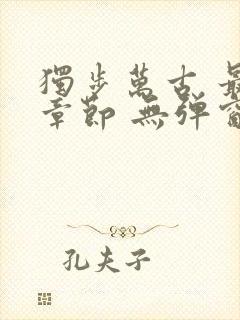 獨步萬古 最
章節 無彈窗
孔夫子